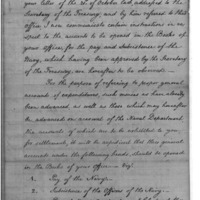 your letter of the 15. of October last, addressed to the
Secretary of the Treasury, and by him referred to this
office, I now communicate certain instructions in re-
spect to the accounts to be opened in the Books of
your office, for the pay and Subsistence of the
Navy, which having been approved by the Secretary
of the Treasury, are hereafter to be observed —
For the purpose of referring to proper general
accounts of expenditures, such monies as have already
been advanced, as well as those which may hereafter
be advanced on account of the Naval Department
the accounts of which are to be exhibited to you
for settlement, it will be expedient that three general
accounts under the following heads, should be opened
in the Books of your office, viz:
1. Pay of the Navy.
2. Subsistence of the Officers of the Navy. —